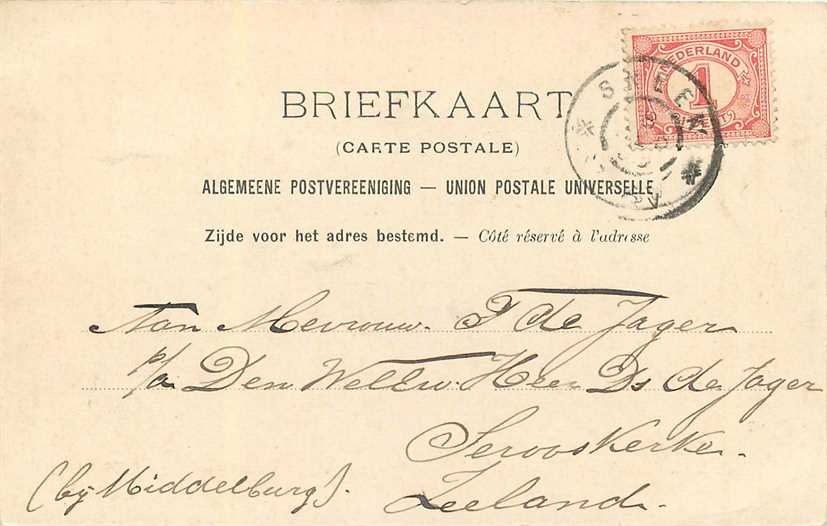 BRIEFKAART
(CARTE POSTALE)
ALGEMEENE POSTVEREENIGING — UNION POSTALE UNIVERSELLE
Zijde voor het adres bestemd. — Côté réservé à l'adresse
NEDERLAND
1
CENT
Aan Mevrouw. F de Jager
p/a Den WelEw. Heer Ds de Jager
Serooskerke.
(bij Middelburg).
Zeeland.